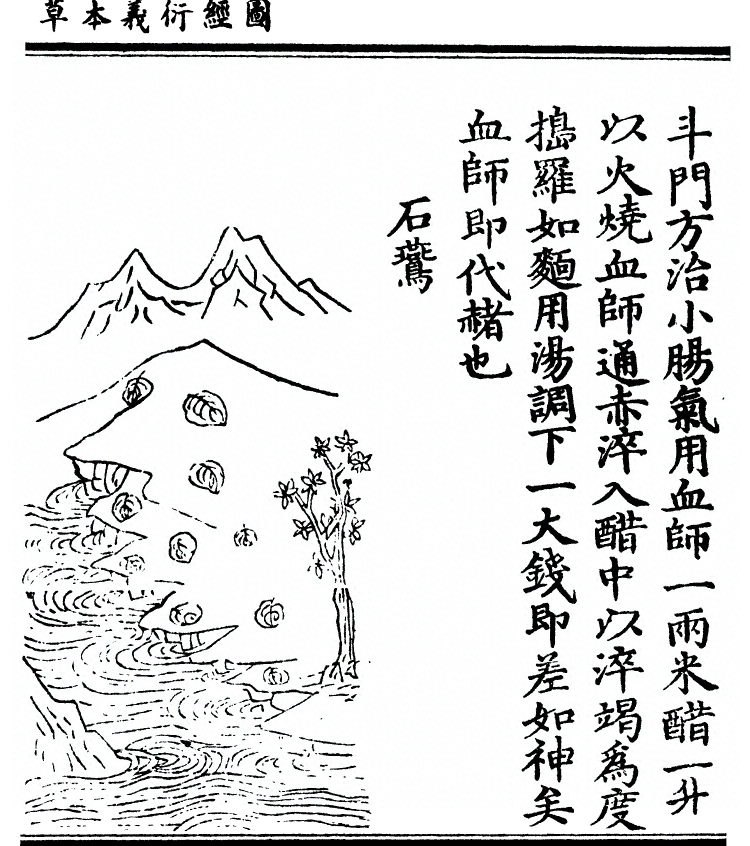 圖經衍義本草
斗門方治小腸氣用血師一兩米醋一升
以火燒血師通赤淬入醋中以淬竭為度
搗羅如麵用湯調下一大錢即差如神矣
血師即代赭也
石鷰